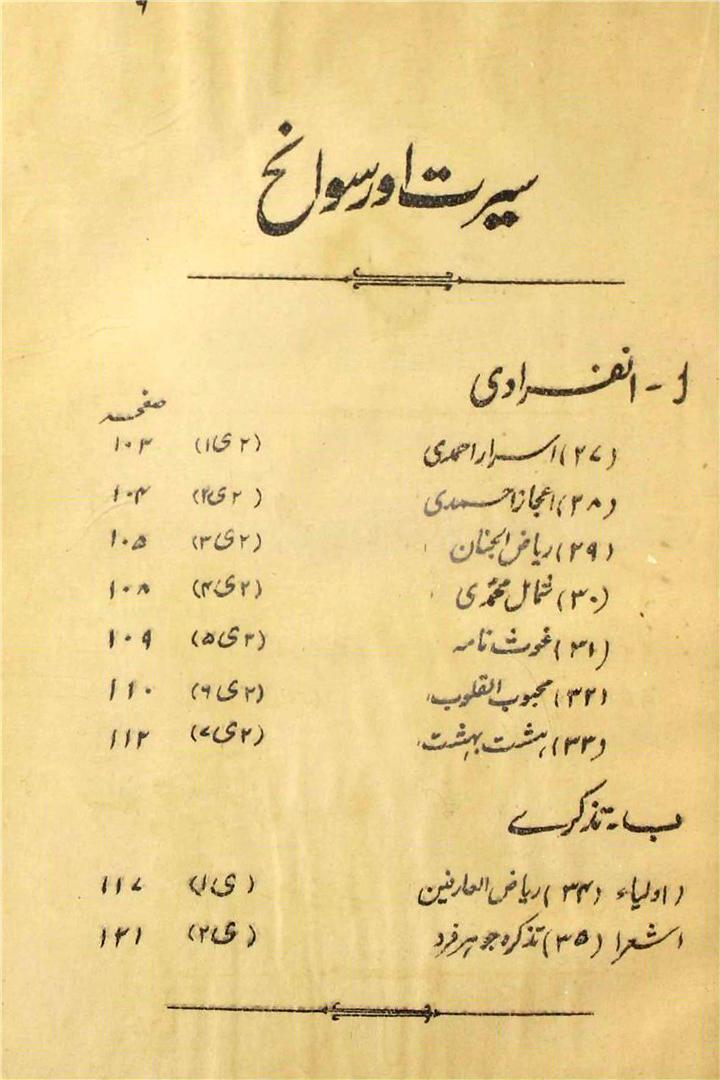 ۹
سیرت اور سوانح
ا - انفرادی
صفحہ
(۲۷) اسرار احمدی (۲ ی ۱) ۱۰۳
(۲۸) اعجاز احمدی (۲ ی ۲) ۱۰۴
(۲۹) ریاض الجنان (۲ ی ۳) ۱۰۵
(۳۰) شمائل محمدی (۲ ی ۴) ۱۰۸
(۳۱) غوث نامہ (۲ ی ۵) ۱۰۹
(۳۲) محبوب القلوب (۲ ی ۶) ۱۱۰
(۳۳) ہشت بہشت (۲ ی ۷) ۱۱۲
ب - تذکرے
اولیاء (۳۴) ریاض العارفین (ی ۱) ۱۱۷
شعرا (۳۵) تذکرہ جوہر فرد (ی ۲) ۱۲۱